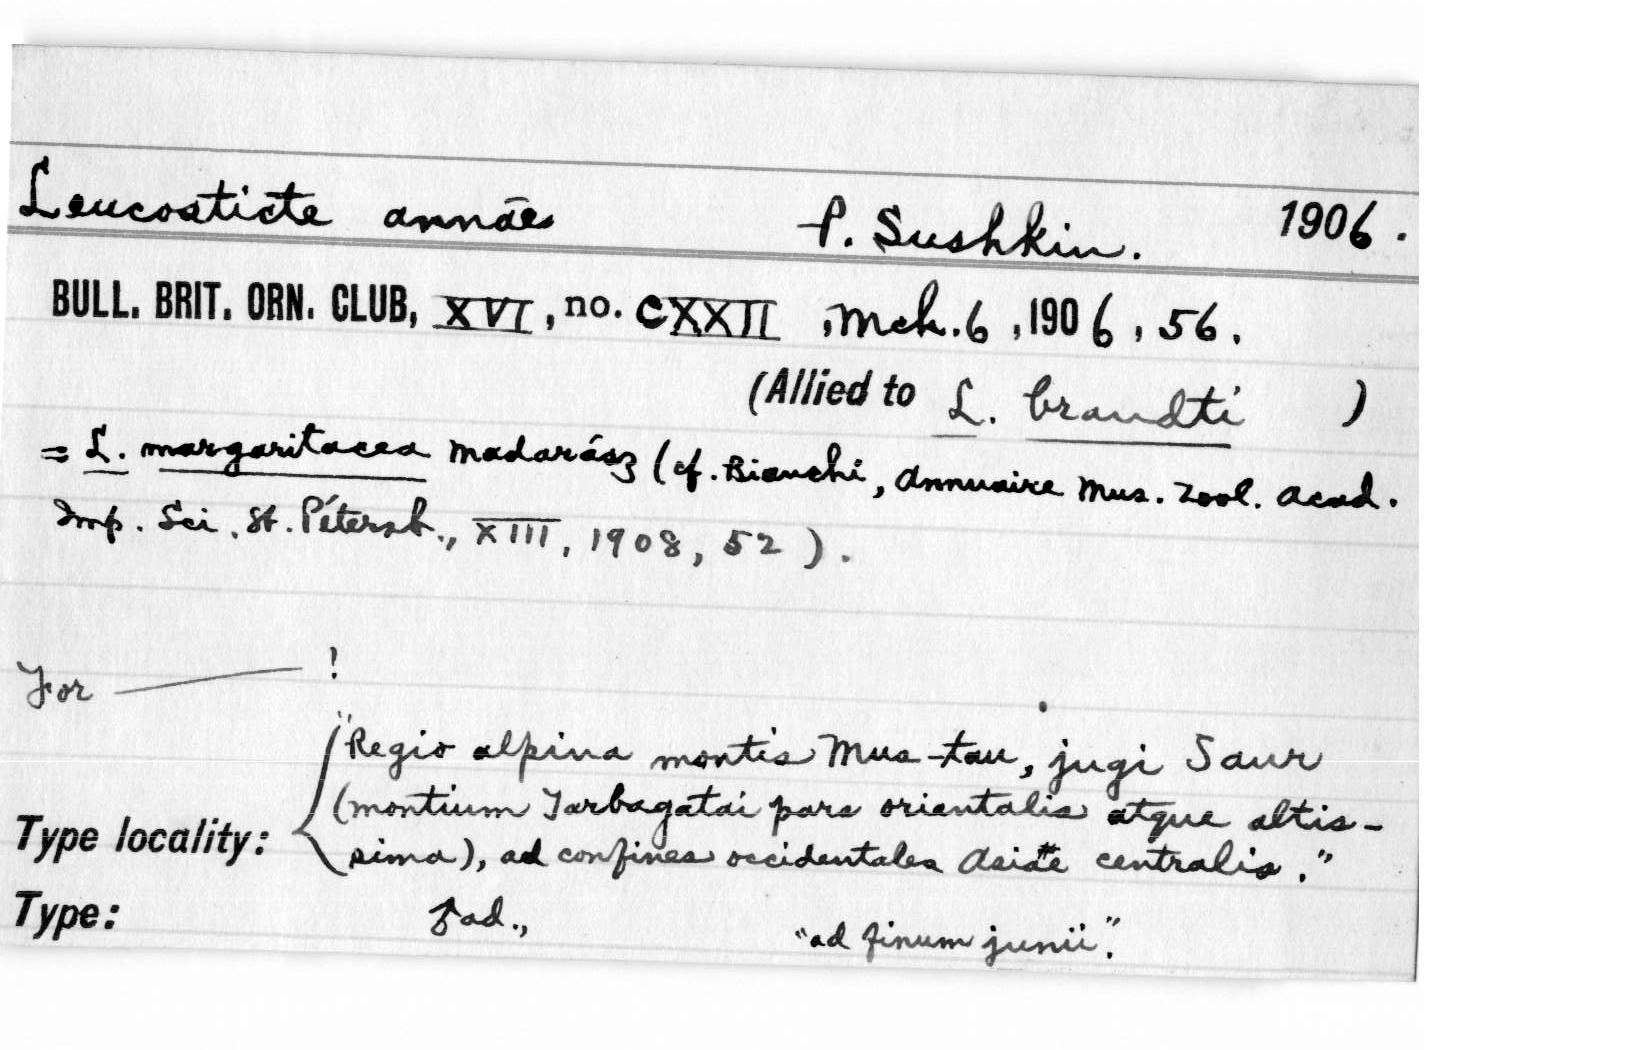 Leucosticte annae P. Sushkin. 1906.
BULL. BRIT. ORN. CLUB, XVI, no. CXXII, Mch. 6, 1906, 56.
(Allied to L. brandti )
= L. margaritacea Madarász (cf. Bianchi, Annuaire Mus. Zool. Acad.
Imp. Sci. St. Pétersb., XIII, 1908, 52).
For — !
"Regio alpina montis Mus-tau, jugi Saur
(montium Tarbagatai pars orientalis atque altis-
Type locality: sima), ad confines occidentales Asiae centralis."
Type: ad., "ad finum junii".